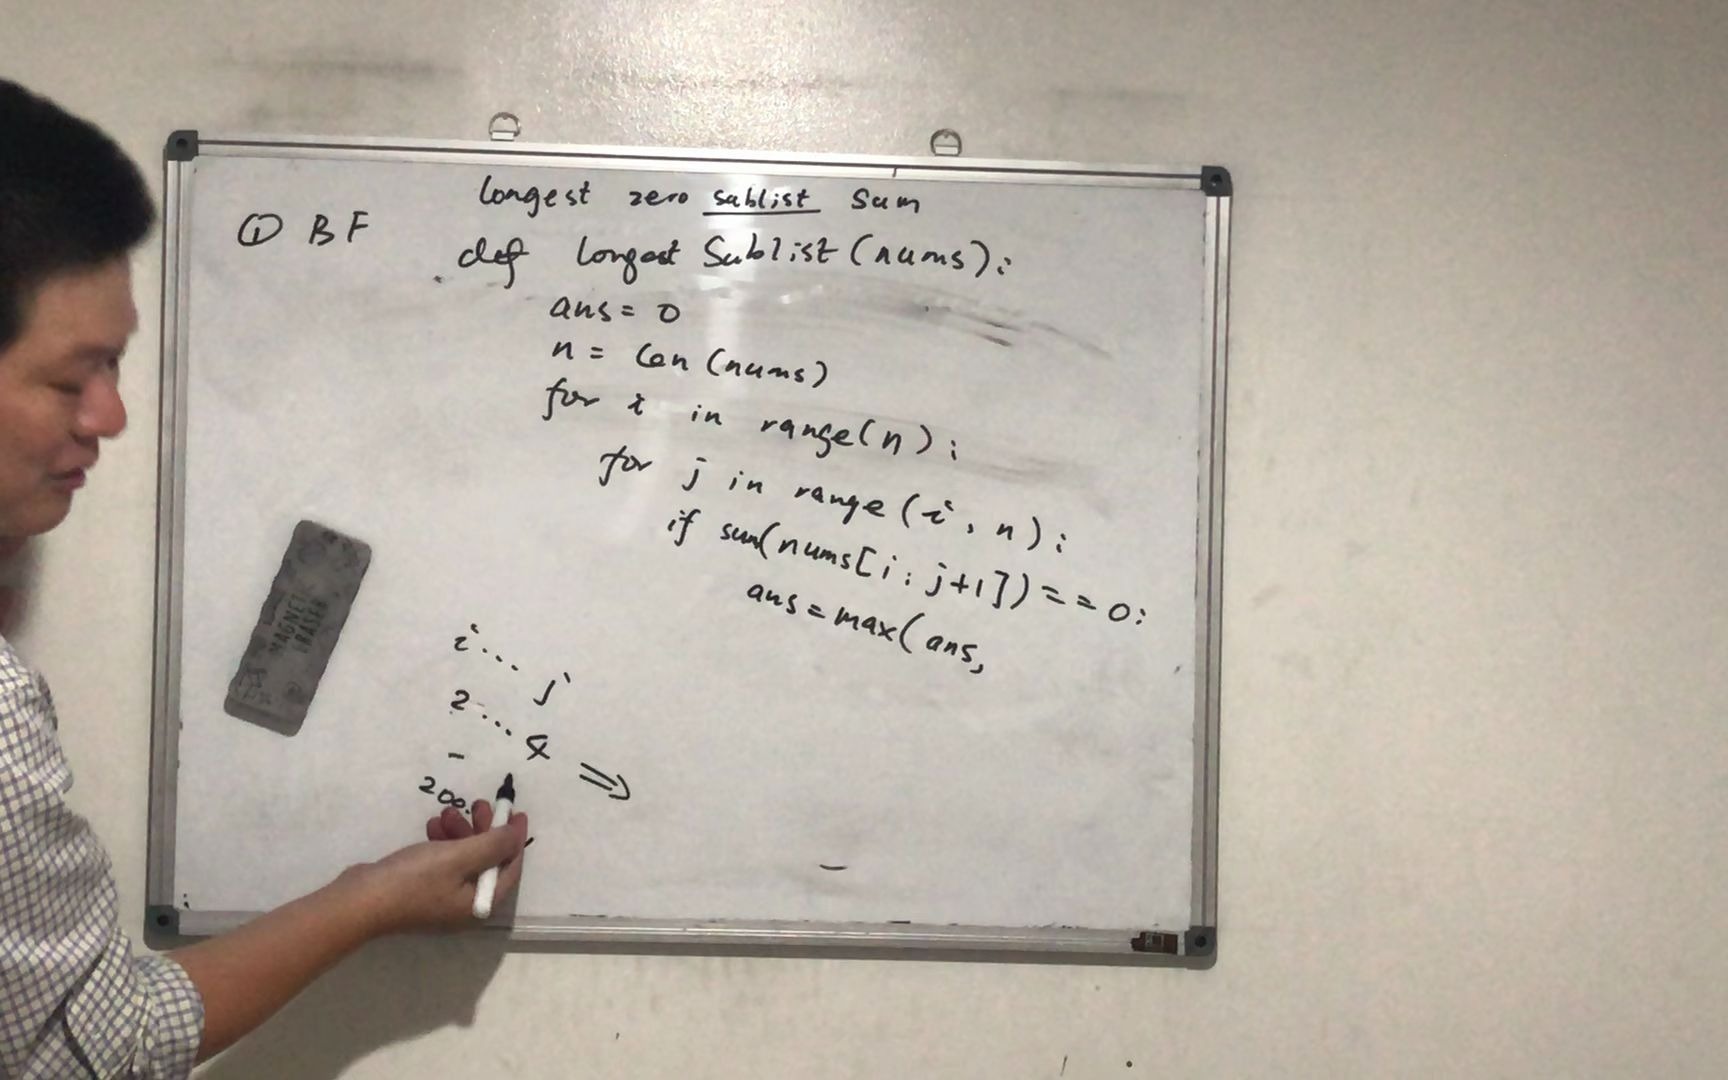 Longest zero sublist Sum
① BF
def longest Sublist (nums):
ans = 0
n = len (nums)
for i in range(n):
for j in range (i, n):
if sum(nums[i: j+1]) == 0:
ans = max( ans,
MAGNET
ERASER
i... j
2... 4 ⇒
200.